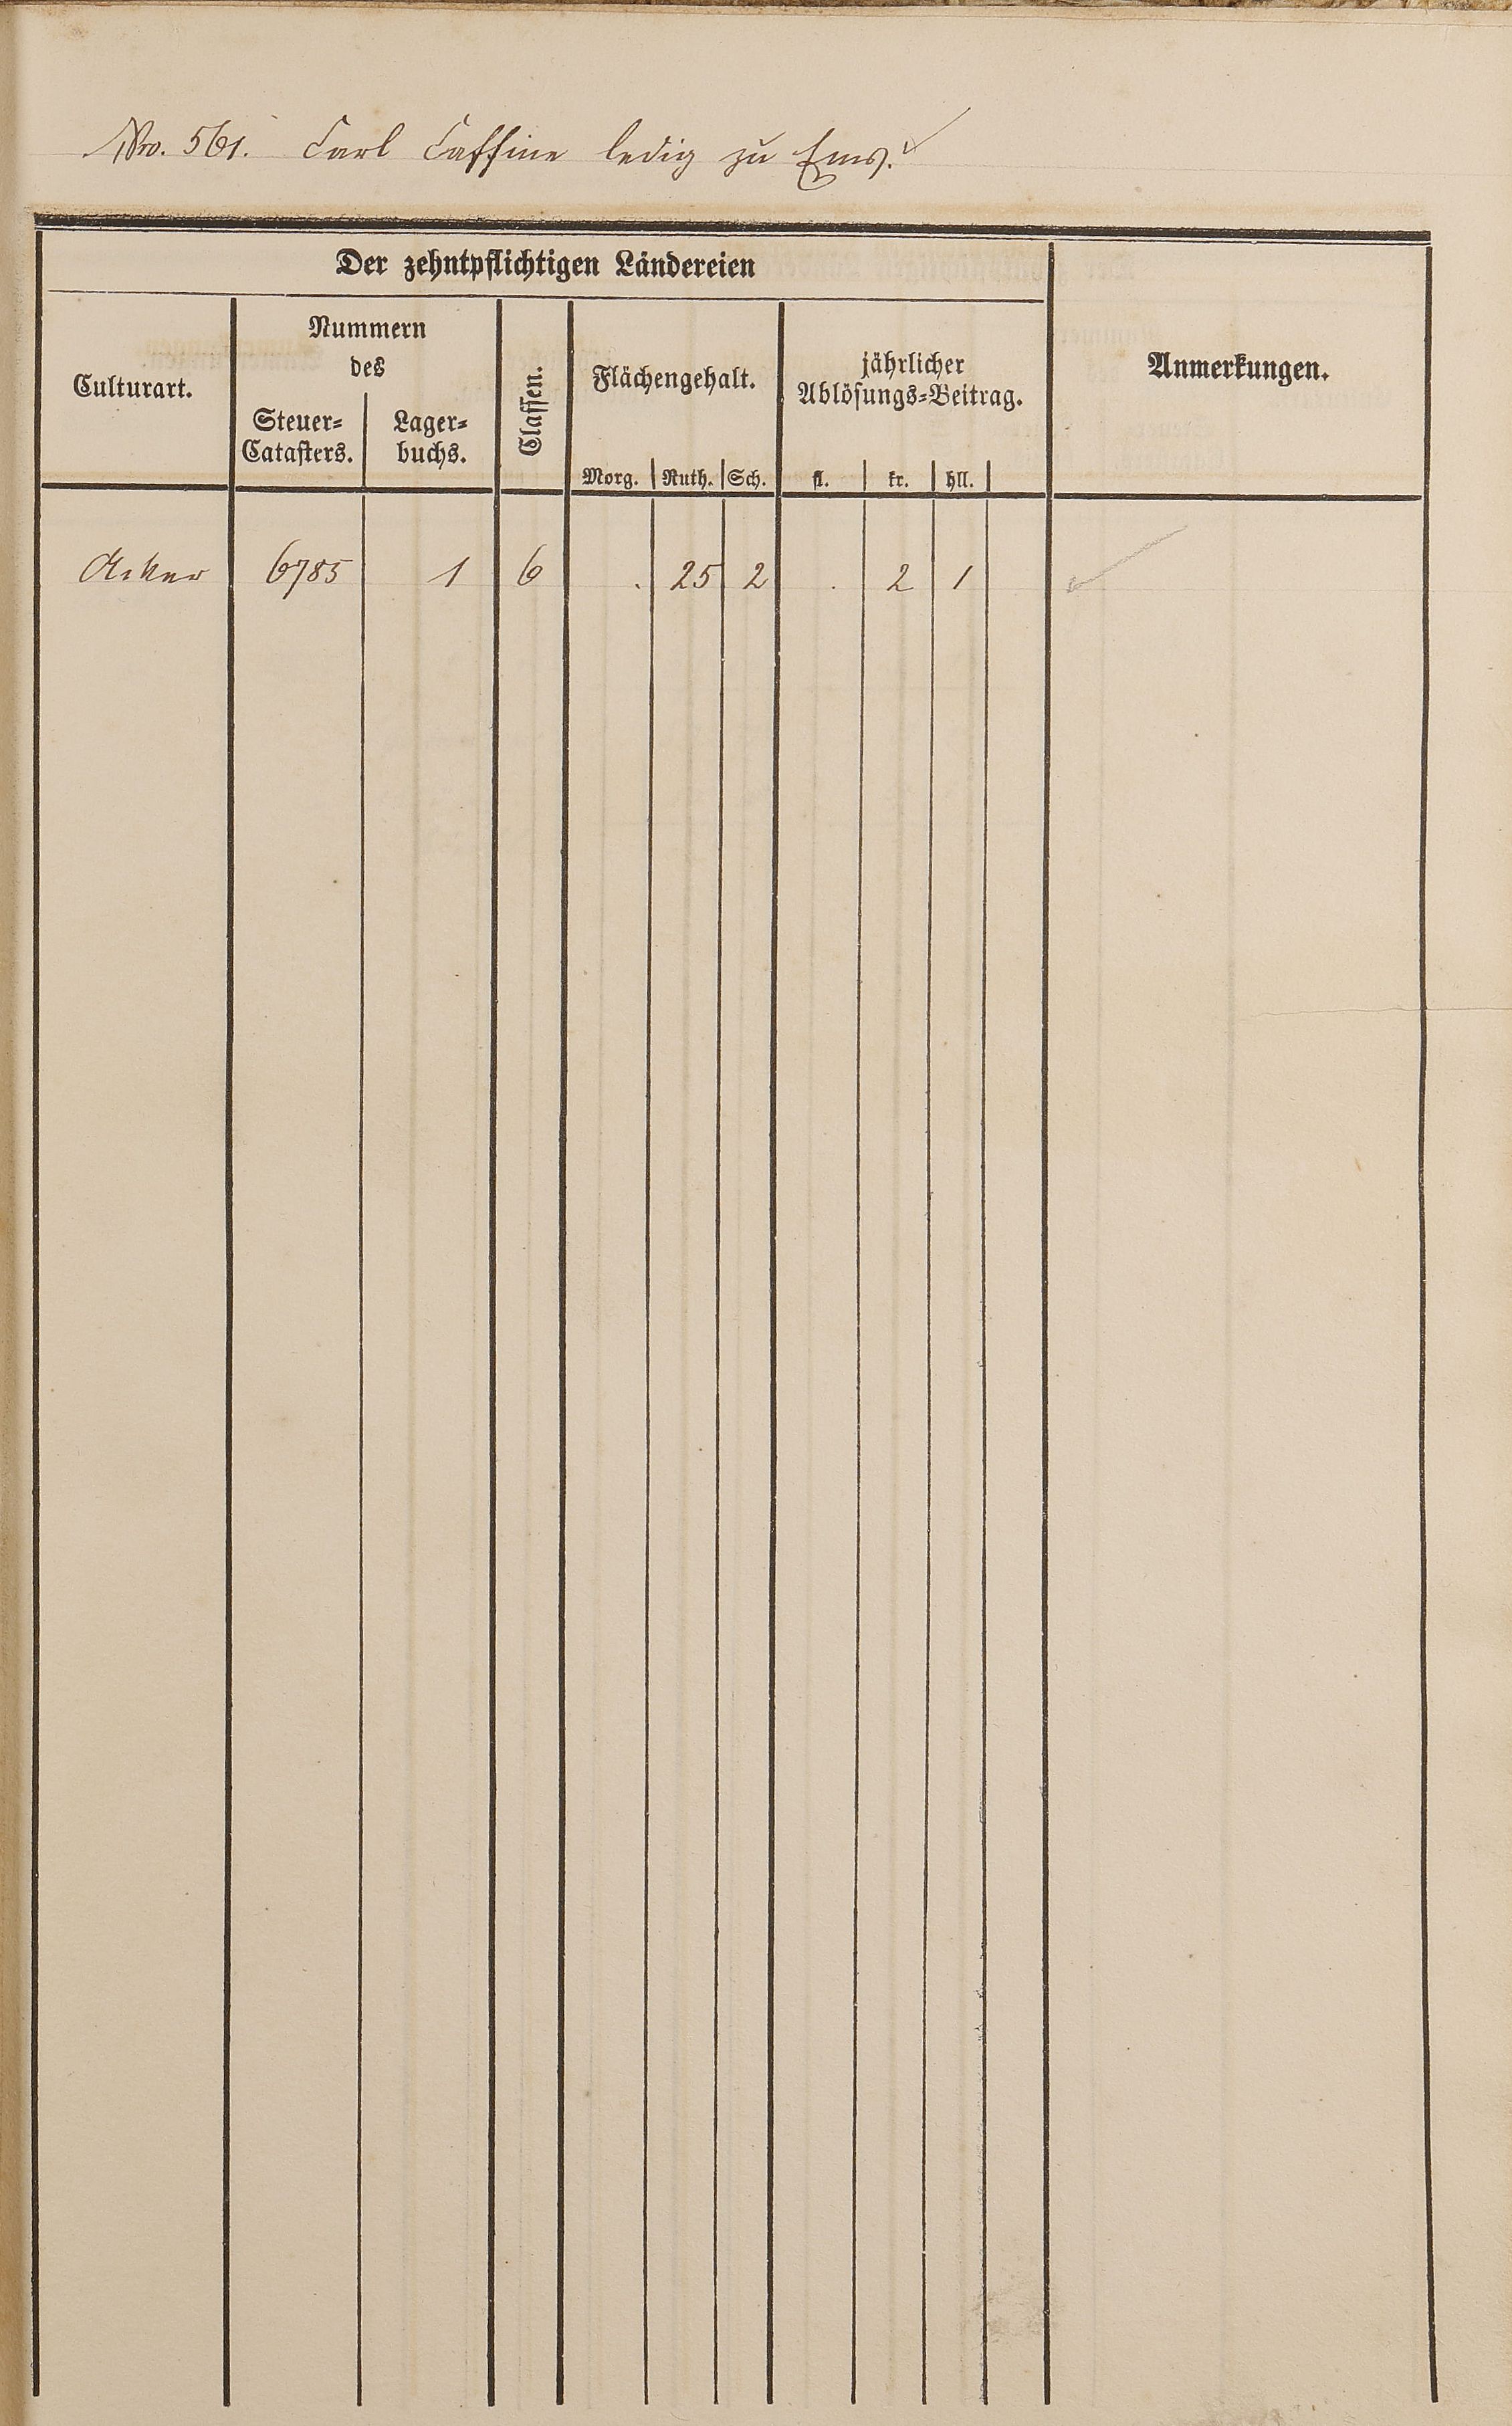 Nro. 561. Carl Caffine ledig zu Ems.
Der zehntpflichtigen Ländereien
Culturart.
Nummern
des
Steuer-
Catasters.
Lager-
buchs.
Classen.
Flächengehalt.
Morg. Ruth. Sch.
jährlicher
Ablösungs-Beitrag.
fl. kr. hll.
Anmerkungen.
Acker 6785 1 6 . 25 2 . 2 1